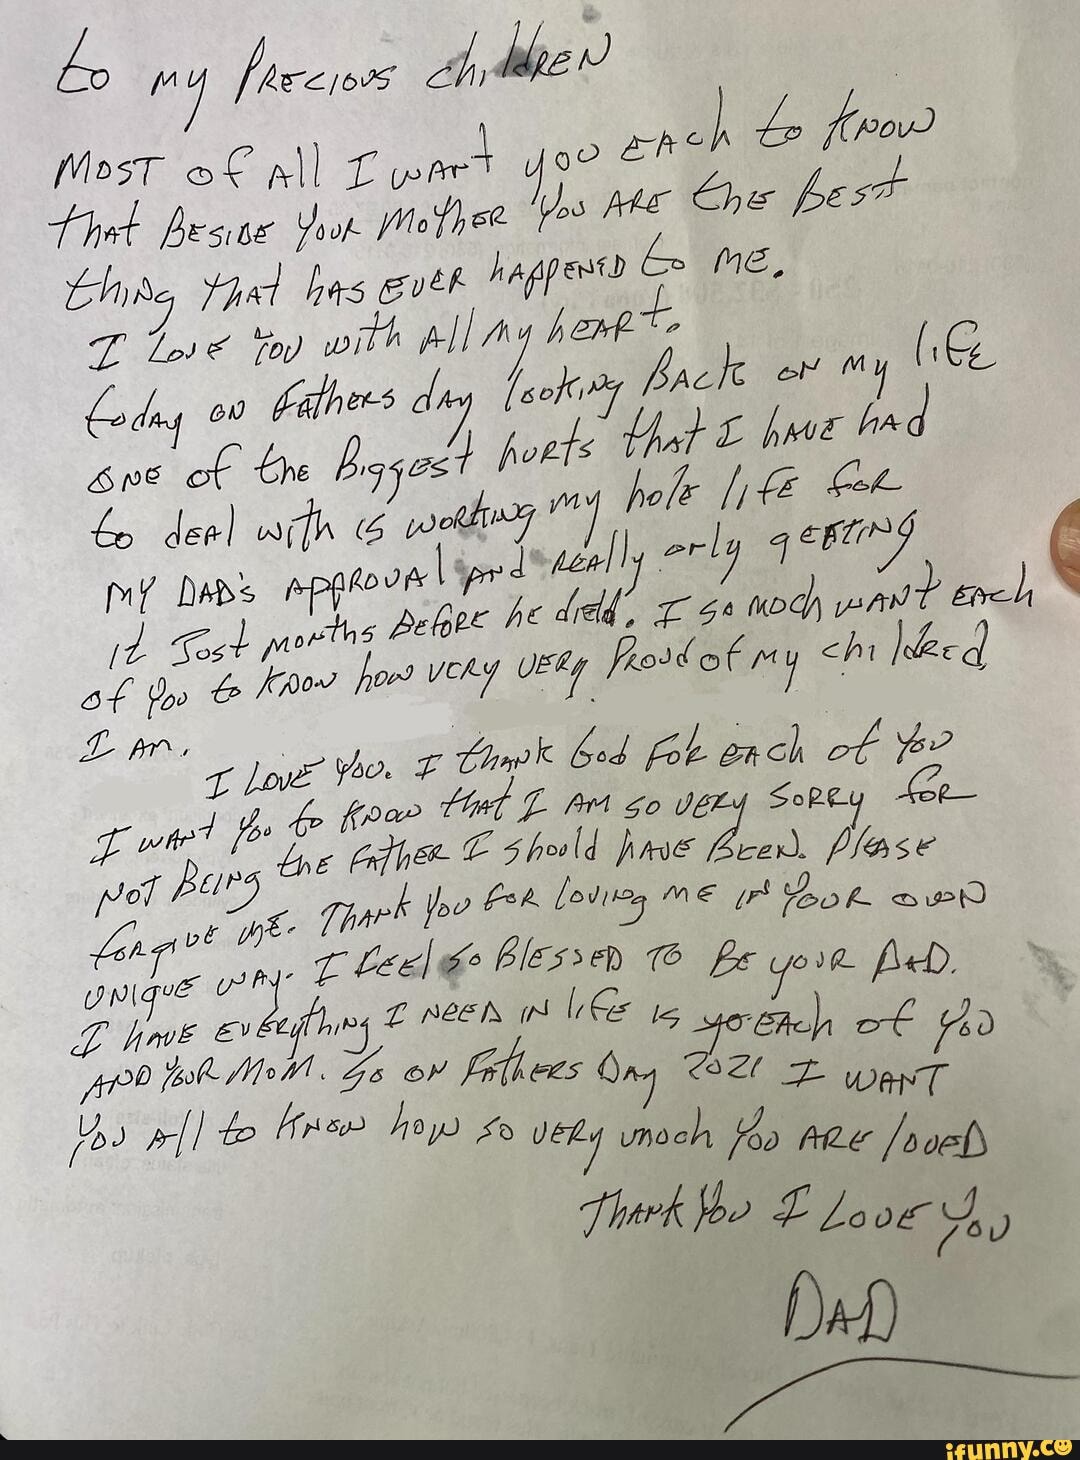 to my Precious children
Most of all I want you each to know
that Beside Your Mother You Are the Best
thing that has ever happened to me.
I Love You with All my heart.
today on Fathers day looking Back on my life
One of the Biggest hurts that I have had
to deal with is working my hole life for
my Dad's approval and really only getting
it Just months Before he died. I so moch want each
of You to Know how very very Proud of my children
I am.
I Love You. I thank God For each of You
I want You to Know that I am so very sorry for
not Being the Father I should have Been. Please
forgive me. Thank You for loving me in Your own
unique way. I feel so Blessed to Be your Dad.
I have everything I need in life is each of You
and Your Mom. So on Fathers Day 2021 I want
You all to Know how so very moch You are loved
Thank You I Love You
Dad
ifunny.co